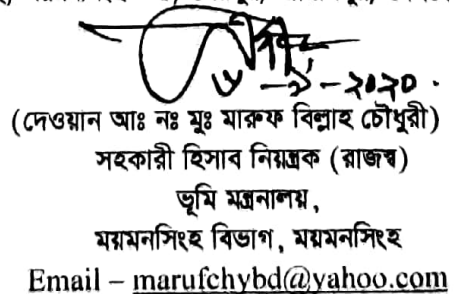 ৬ – ৯ – ২০২০ .
(দেওয়ান আঃ নঃ মুঃ মারুফ বিল্লাহ চৌধুরী)
সহকারী হিসাব নিয়ন্ত্রক (রাজস্ব)
ভূমি মন্ত্রনালয়,
ময়মনসিংহ বিভাগ, ময়মনসিংহ
Email – marufchybd@yahoo.com